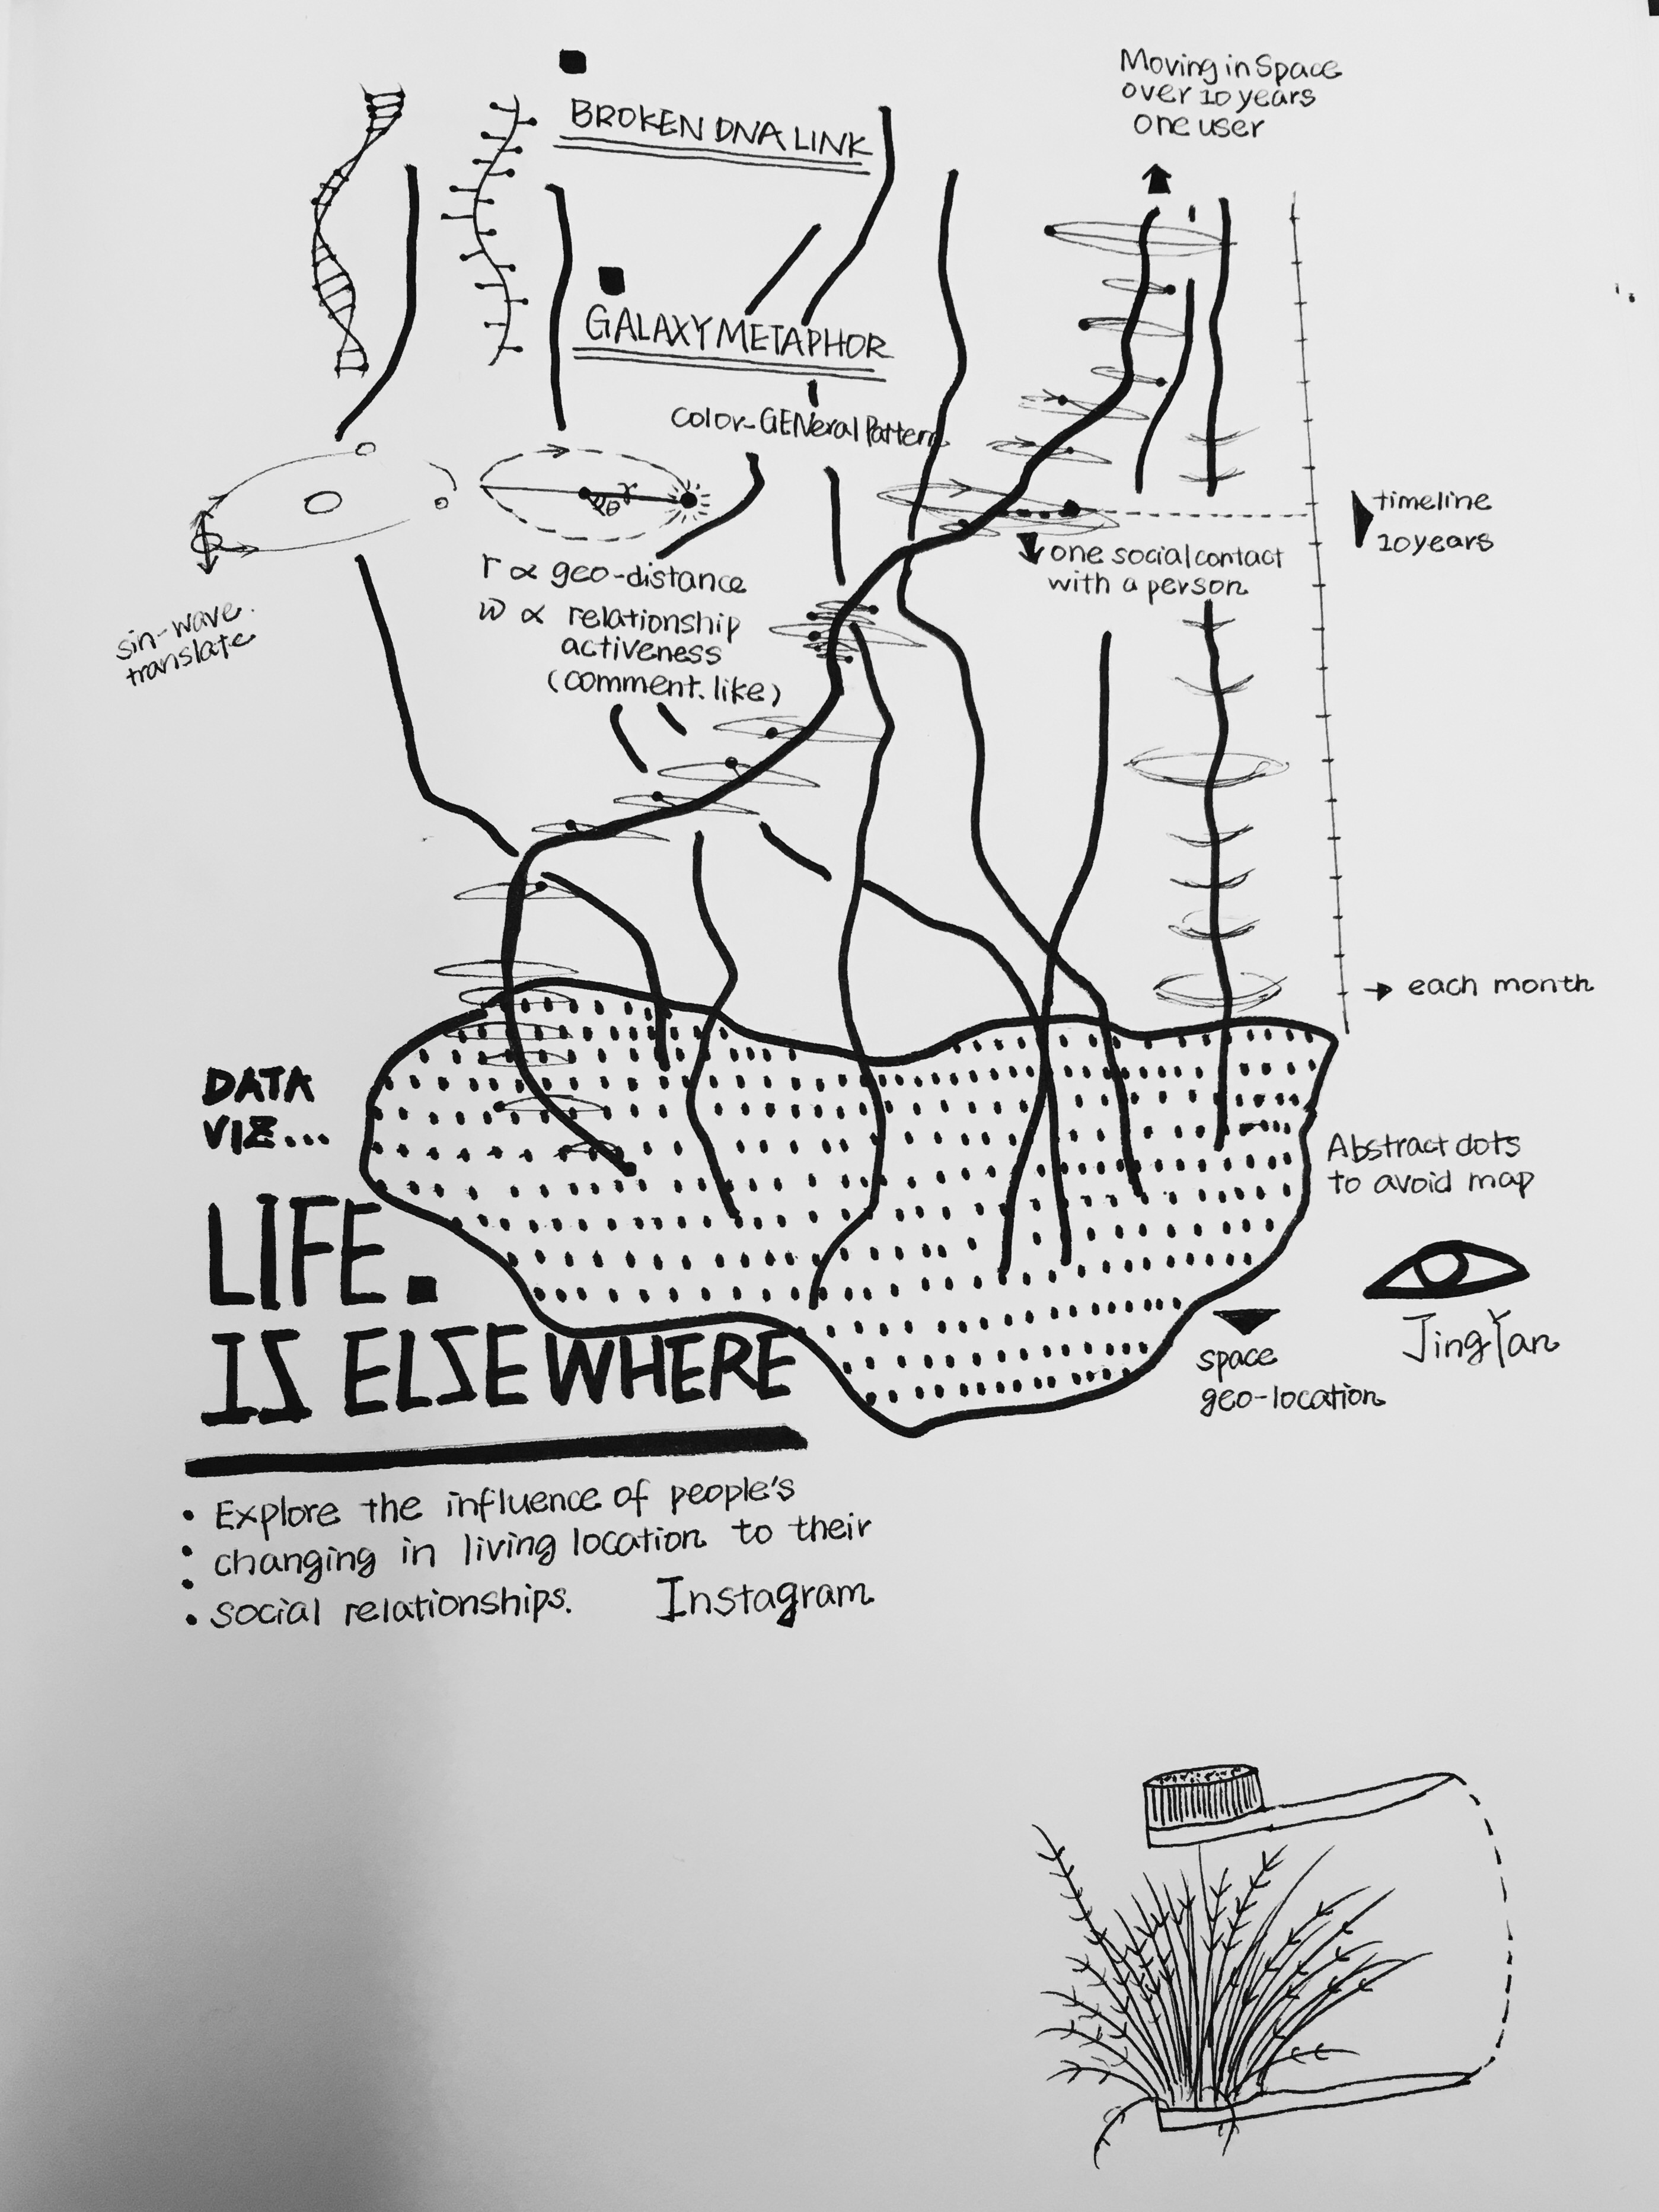 Moving in Space
over 10 years
one user
BROKEN DNA LINK
GALAXY METAPHOR
color-GENeral Pattern
timeline
10 years
r ∝ geo-distance
w ∝ relationship
activeness
(comment. like)
θ r
one social contact
with a person
sin-wave.
translate
→ each month
DATA
VIZ...
Abstract dots
to avoid map
LIFE.
IS ELSEWHERE
JingYan
space
geo-location
• Explore the influence of people's
• changing in living location to their
• social relationships. Instagram